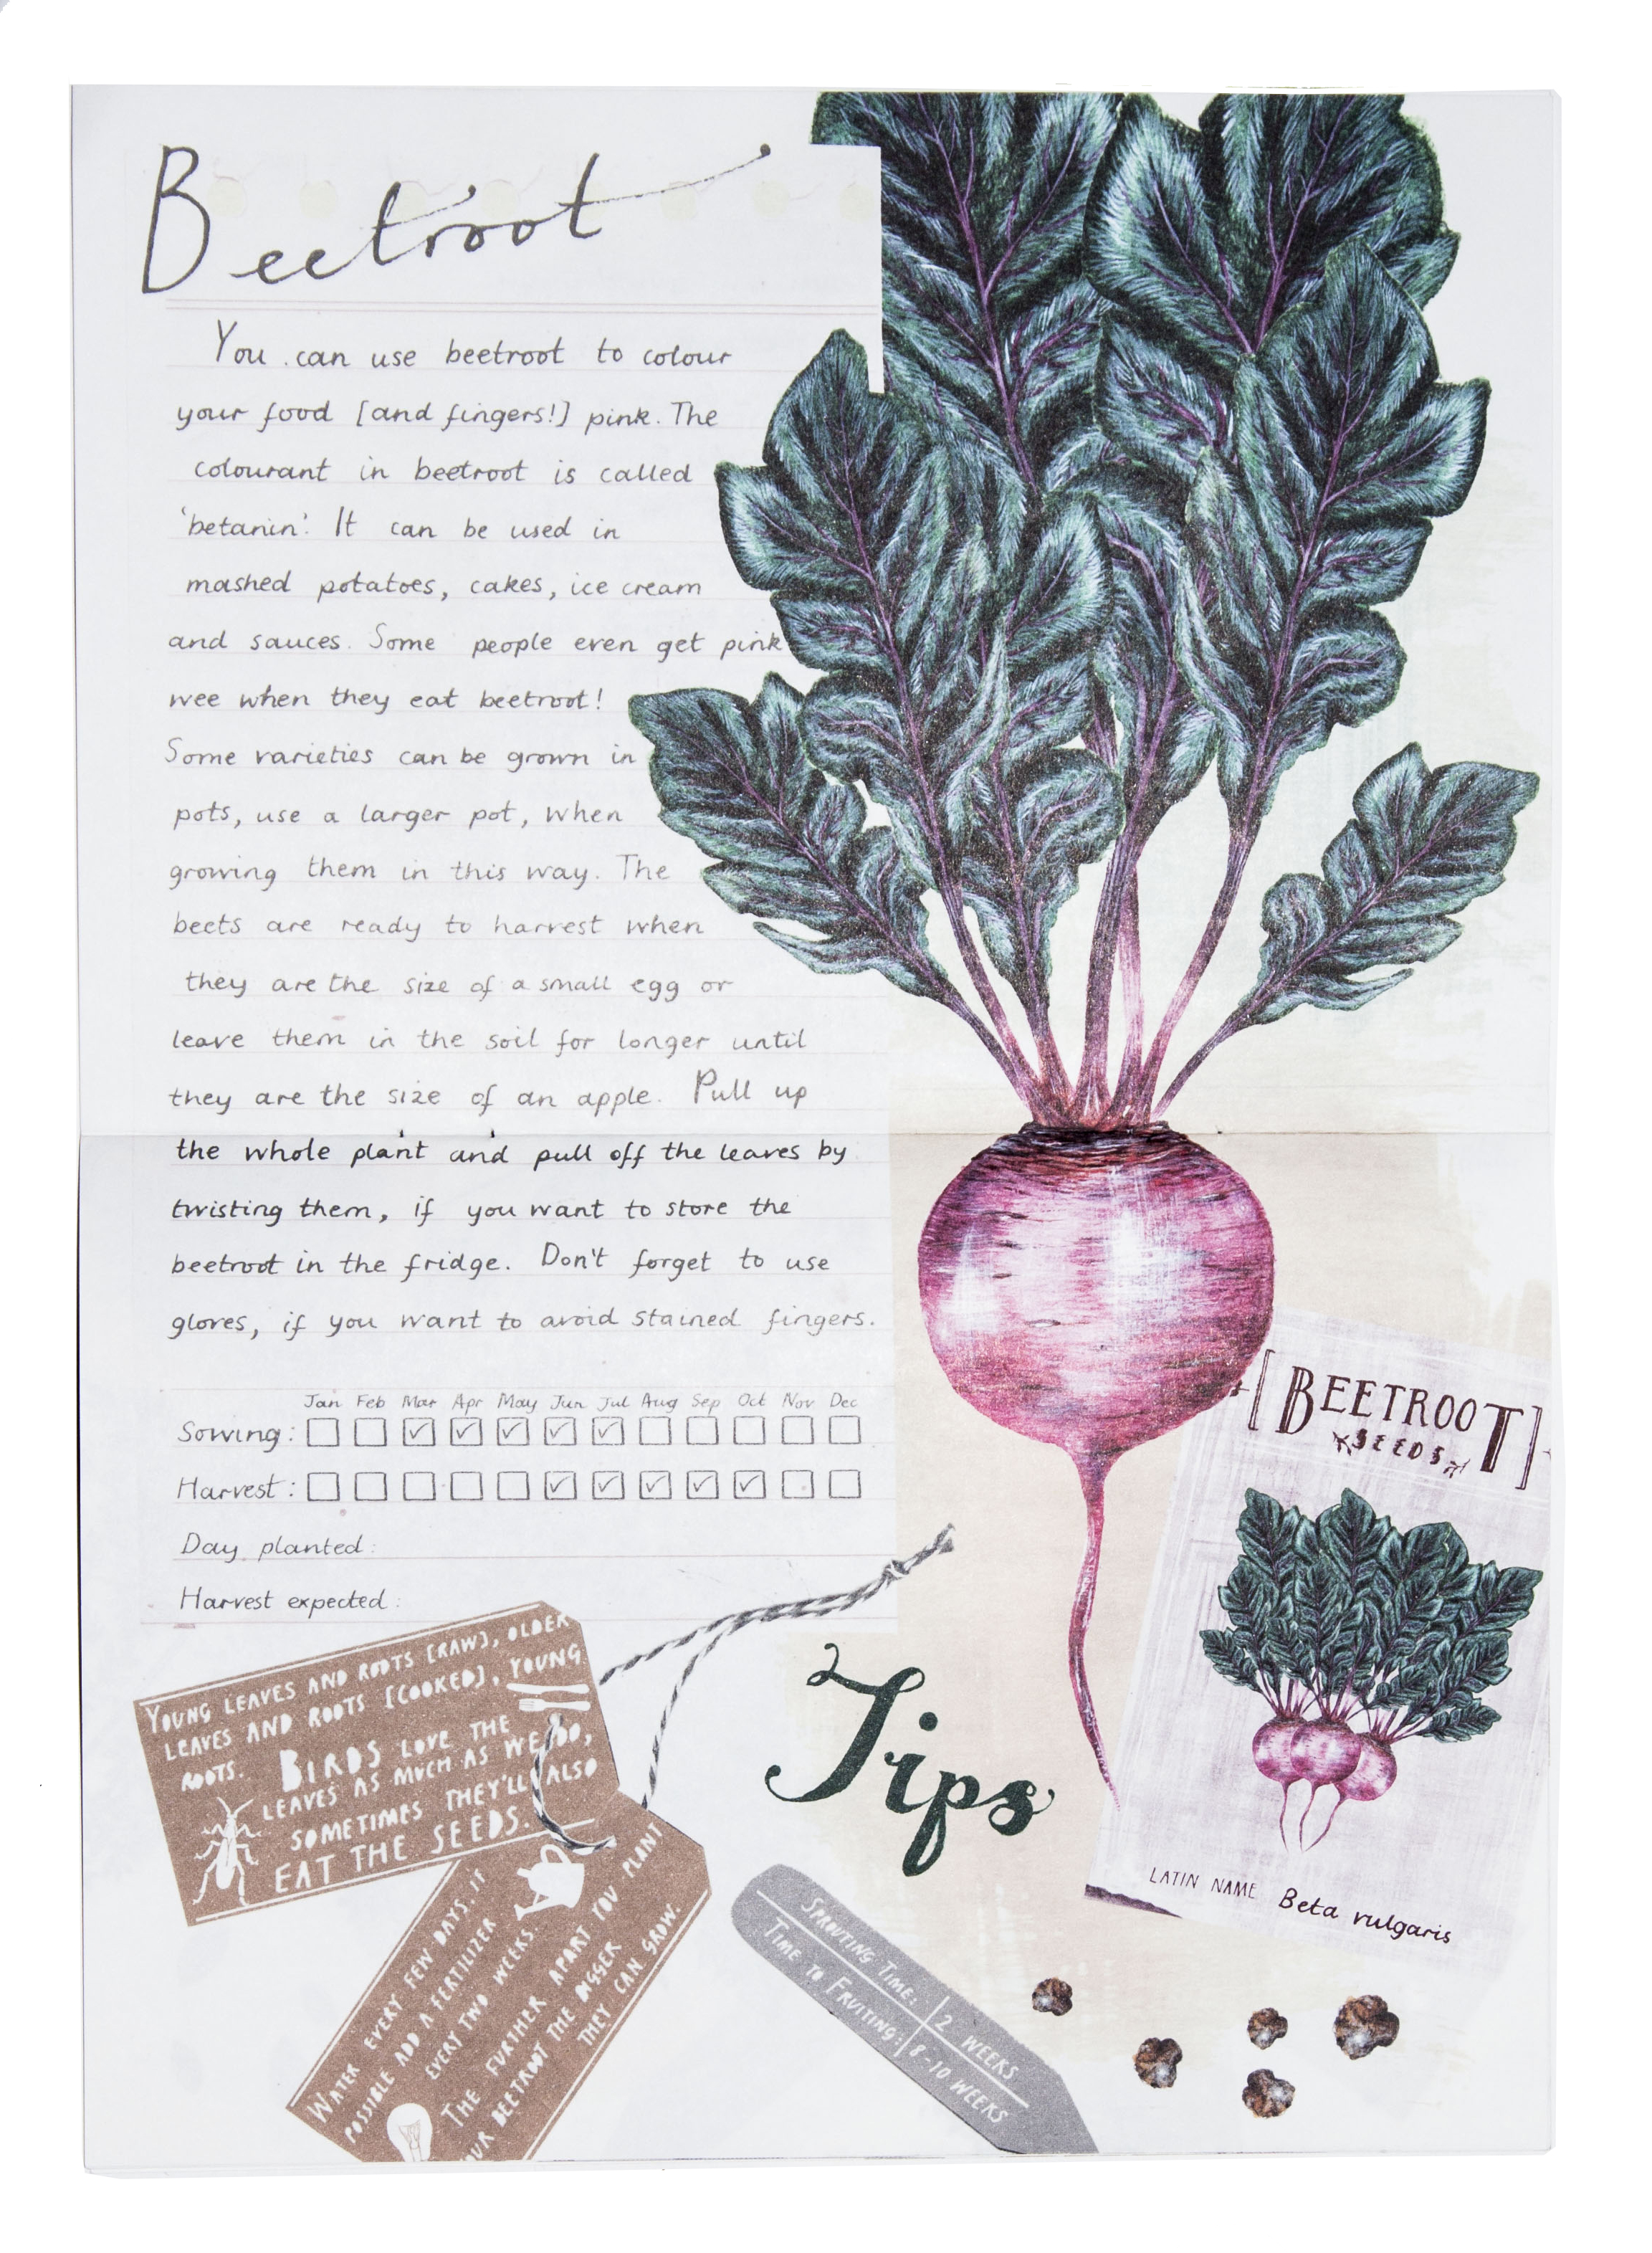 Beetroot
You can use beetroot to colour
your food [and fingers!] pink. The
colourant in beetroot is called
'betanin'. It can be used in
mashed potatoes, cakes, ice cream
and sauces. Some people even get pink
wee when they eat beetroot!
Some varieties can be grown in
pots, use a larger pot, when
growing them in this way. The
beets are ready to harvest when
they are the size of a small egg or
leave them in the soil for longer until
they are the size of an apple. Pull up
the whole plant and pull off the leaves by
twisting them, if you want to store the
beetroot in the fridge. Don't forget to use
gloves, if you want to avoid stained fingers.
Jan Feb Mar Apr May Jun Jul Aug Sep Oct Nov Dec
Sowing:
Harvest:
Day planted:
Harvest expected:
YOUNG LEAVES AND ROOTS [RAW], OLDER
LEAVES AND ROOTS [COOKED], YOUNG
ROOTS.
BIRDS LOVE THE
LEAVES AS MUCH AS WE DO,
SOMETIMES THEY'LL ALSO
EAT THE SEEDS.
WATER EVERY FEW DAYS, IF
POSSIBLE ADD A FERTILIZER
EVERY TWO WEEKS.
THE FURTHER APART YOU PLANT
YOUR BEETROOT THE BIGGER
THEY CAN GROW.
Tips
SPROUTING TIME: 2 WEEKS
TIME TO FRUITING: 8-10 WEEKS
[BEETROOT]
SEEDS
LATIN NAME Beta vulgaris